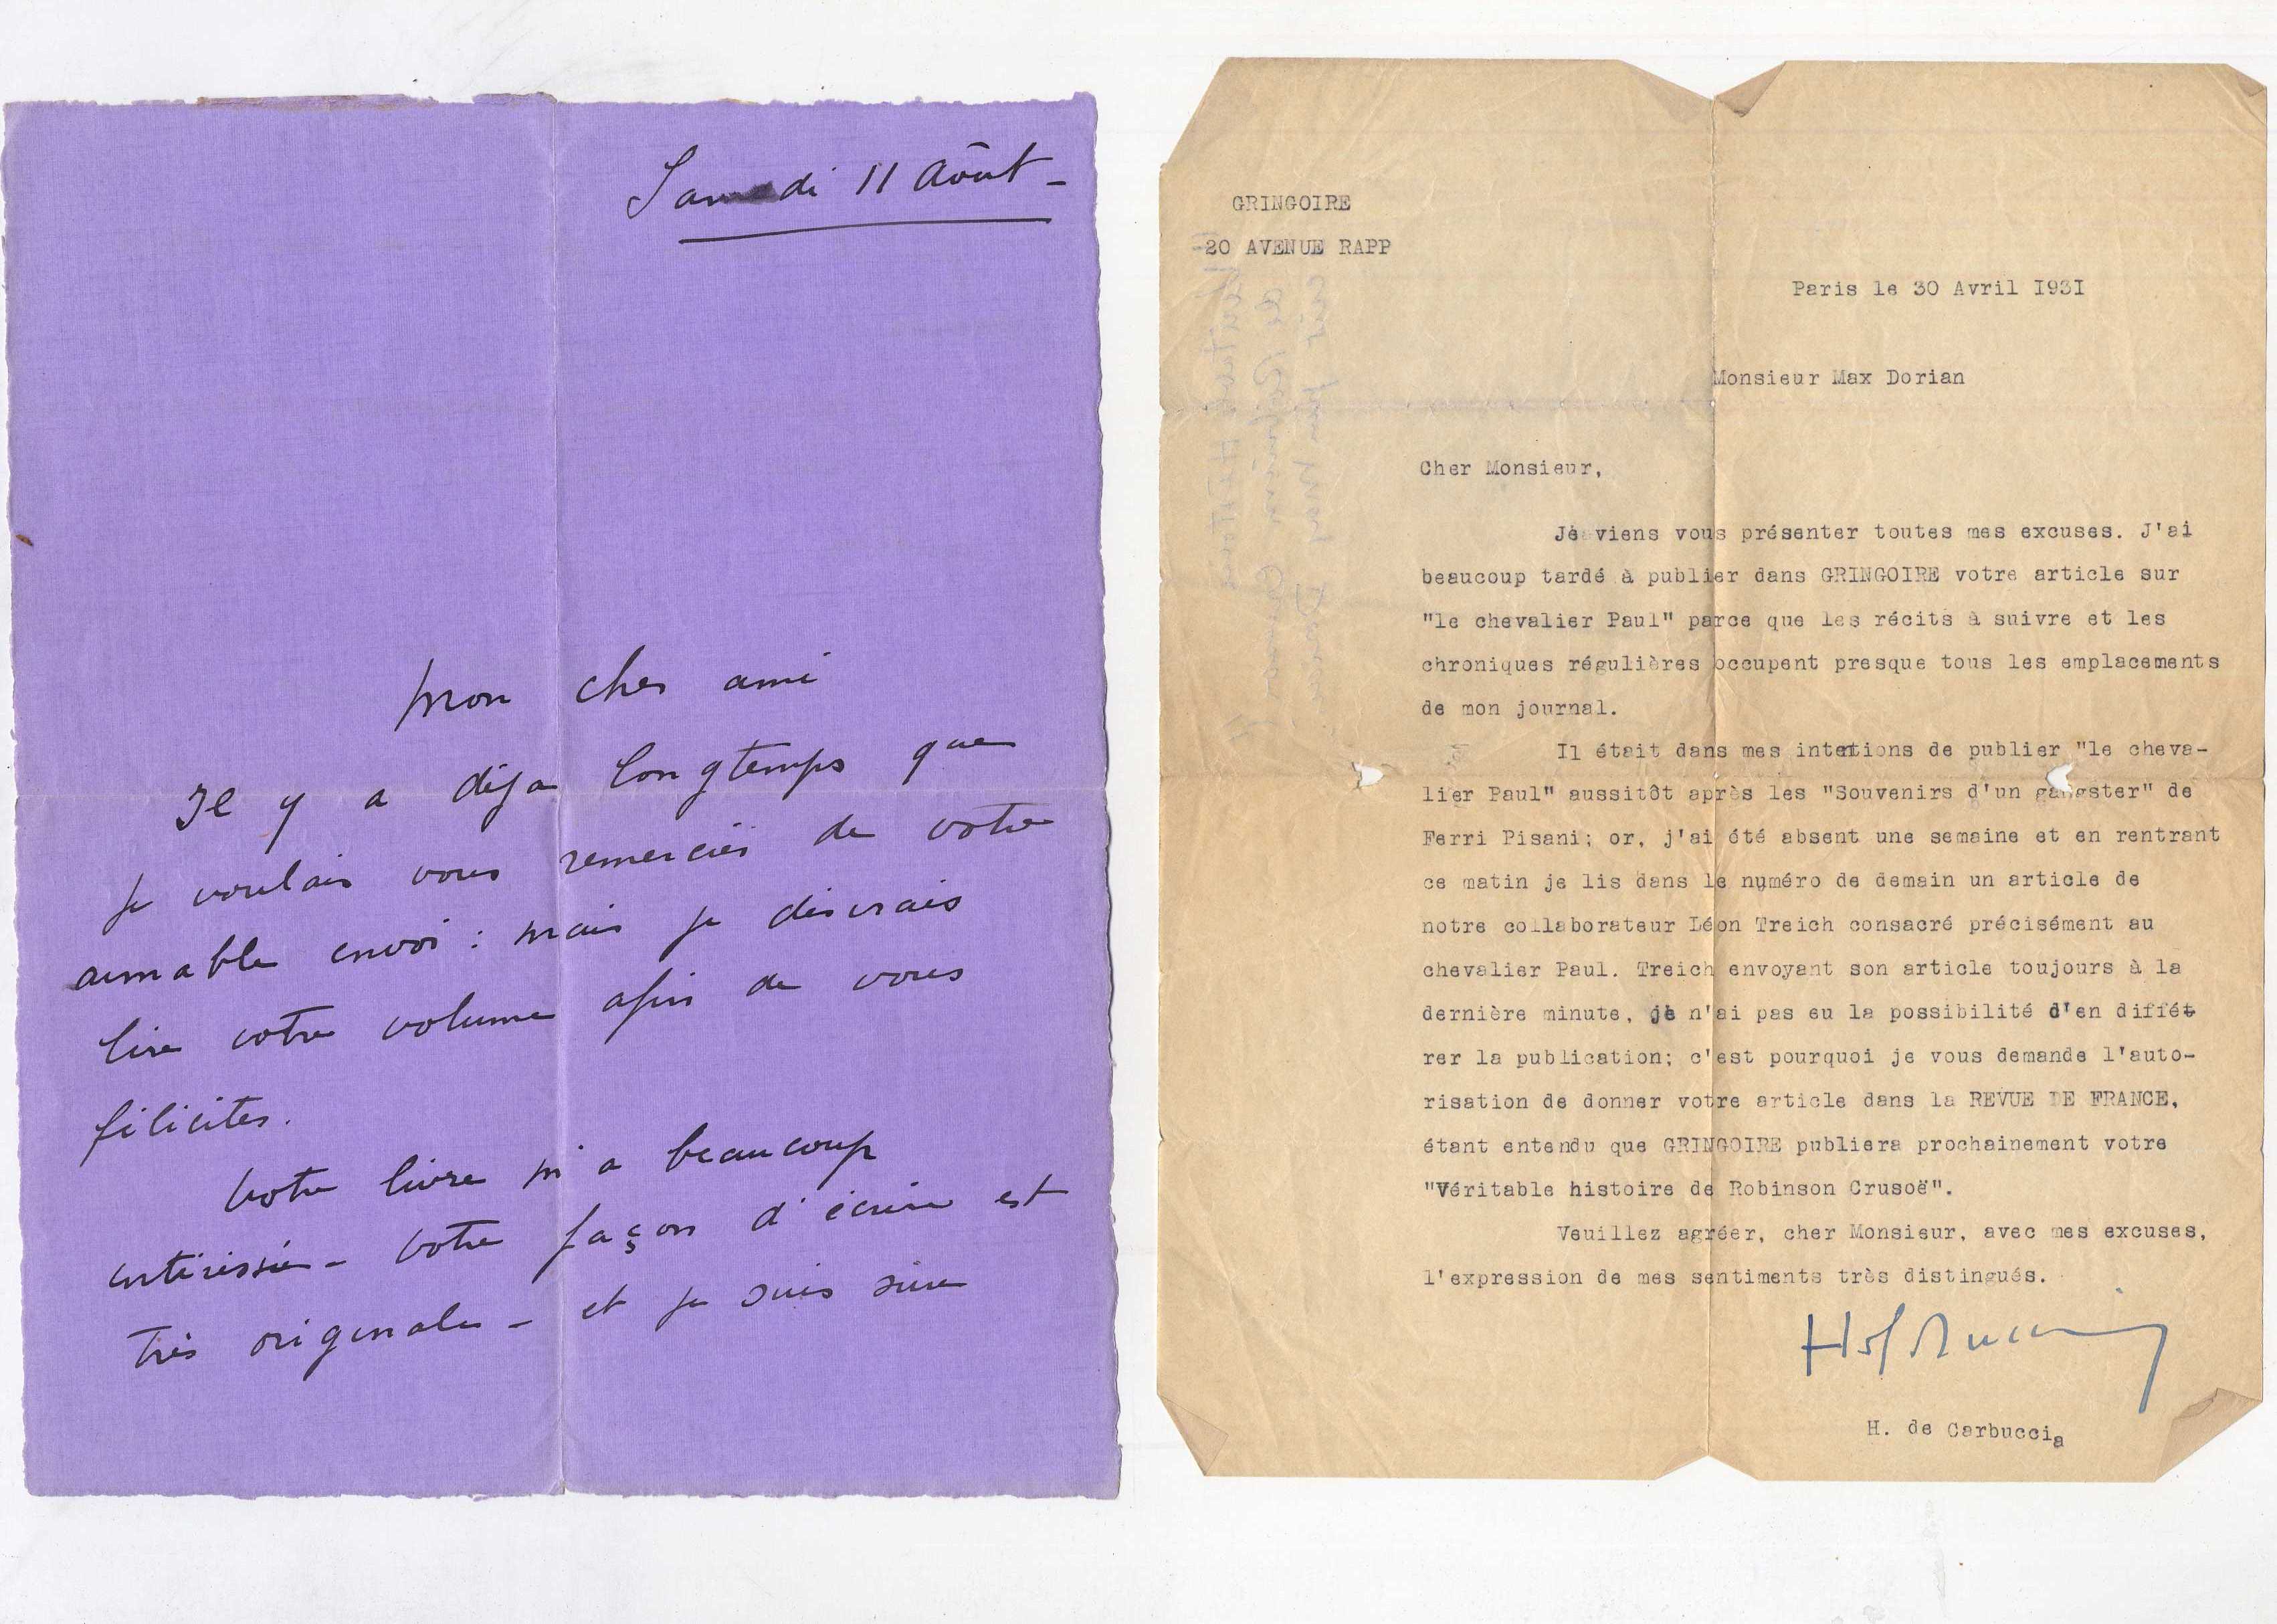 Samedi 11 Août -
Mon cher ami
Il y a déja longtemps que
je voulais vous remercier de votre
aimable envoi : mais je désirais
lire votre volume afin de vous
féliciter.
Votre livre m'a beaucoup
intéressée - votre façon d'écrire est
très originale - et je suis sûre
GRINGOIRE
20 AVENUE RAPP
Paris le 30 Avril I93I
Monsieur Max Dorian
Cher Monsieur,
Je viens vous présenter toutes mes excuses. J'ai
beaucoup tardé à publier dans GRINGOIRE votre article sur
"le chevalier Paul" parce que les récits à suivre et les
chroniques régulières occupent presque tous les emplacements
de mon journal.
Il était dans mes intetions de publier "le cheva-
lier Paul" aussitôt après les "Souvenirs d'un gangster" de
Ferri Pisani; or, j'ai été absent une semaine et en rentrant
ce matin je lis dans le numéro de demain un article de
notre collaborateur Léon Treich consacré précisément au
chevalier Paul. Treich envoyant son article toujours à la
dernière minute, je n'ai pas eu la possibilité d'en diffé-
rer la publication; c'est pourquoi je vous demande l'auto-
risation de donner votre article dans la REVUE DE FRANCE,
étant entendu que GRINGOIRE publiera prochainement votre
"Véritable histoire de Robinson Crusoë".
Veuillez agréer, cher Monsieur, avec mes excuses,
l'expression de mes sentiments très distingués.
H. de Carbuccia